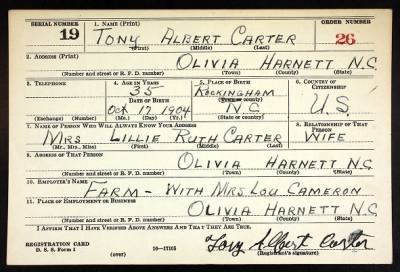 SERIAL NUMBER 1. NAME (Print) ORDER NUMBER
19 TONY ALBERT CARTER 26
(First) (Middle) (Last)
2. ADDRESS (Print)
OLIVIA HARNETT N.C.
(Number and street or R. F. D. number) (Town) (County) (State)
3. TELEPHONE 4. AGE IN YEARS 5. PLACE OF BIRTH 6. COUNTRY OF CITIZENSHIP
35 ROCKINGHAM
DATE OF BIRTH (Town or county)
OCT 17 1904 N.C. U.S
(Exchange) (Number) (Mo.) (Day) (Yr.) (State or country)
7. NAME OF PERSON WHO WILL ALWAYS KNOW YOUR ADDRESS 8. RELATIONSHIP OF THAT PERSON
MRS LILLIE RUTH CARTER WIFE
(Mr., Mrs., Miss) (First) (Middle) (Last)
9. ADDRESS OF THAT PERSON
OLIVIA HARNETT N.C.
(Number and street or R. F. D. number) (Town) (County) (State)
10. EMPLOYER'S NAME
FARM - WITH MRS LOU CAMERON
11. PLACE OF EMPLOYMENT OR BUSINESS
OLIVIA HARNETT N.C.
(Number and street or R. F. D. number) (Town) (County) (State)
I AFFIRM THAT I HAVE VERIFIED ABOVE ANSWERS AND THAT THEY ARE TRUE.
REGISTRATION CARD
D. S. S. Form 1 (over) 16-17105 Tony Albert Carter
(Registrant's signature)